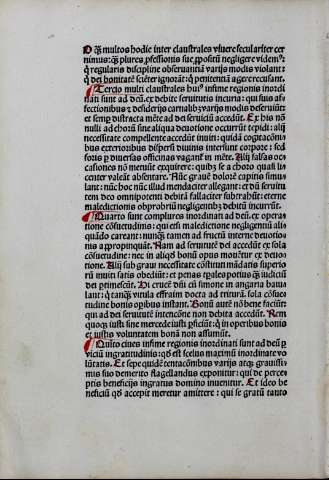 O q̃ multos hodie inter claustrales viuere seculariter cer
nimus: q̃ plures p̃fessionis sue p̃positū negligere videm⁹:
q̃ regularis discipline obseruantiā varijs modis violant:
q̃ dei bonitatē sciēter ignorāt: q̃ penitentiā agere recusant.
Tercio multi claustrales hui⁹ infime regionis inordi
nati sunt ad deū.ex debite seruitutis incuria: qui suis af
fectionibus ⁊ desiderijs carnalib⁹ varijs modis deseruiūt:
et semp̱ distracta mēte ad dei seruiciū accedūt. Ex his nō
nulli ad chorū sine aliqua deuotione occurrūt tepidi: alij
necessitate compellente accedunt inuiti: quidā cogitacōni
bus exterioribus dispersi diuinis intersunt corpore: sed
foris p̱ diuersas officinas vagant̃ in mēte. Alij falsas occa
siones nō metuūt exquirere: quib⁹ se a choro quasi li
center valeāt absentare. Nūc graue dolorē capitis simu
lant: nūc hoc nūc illud mendaciter allegant: et dū seruitu
tem deo omnipotenti debitā fallaciter subtrahūt: eterne
maledictionis obprobriū negligentib⁹ debitū incurrūt.
Quarto sunt complures inordinati ad deū. ex opera
tione cōsuetudinis: qui etsi maledictione negligentiū ali
quādo careant: nunq̃ tamen ad fructū interne deuotio
nis appropinquāt. Nam ad seruitutē dei accedūt ex sola
cōsuetudine: nec in aliqd̃ bonū opus mouētur ex deuoti
one. Alij sub graui necessitate cōstituti mādatis superio
rū muti satis obediūt: et penas t̃pales potius q̃ iudiciū
dei ptimescūt. Di crucē dn̄i cū simone in angaria baiu
lant: q̃ tanq̃ vitula effraim docta ad triturā. sola cōsue
tudine bonis opibus instant. Bonū autē nō bene faciūt:
qui ad dei seruitutē intencōne non debita accedūt. Rem
quoq̃ iustā sine mercede iusti p̱ficiūt: q̃ in operibus bonis
et iustis voluntatem bonā non assumūt.
Quito ciues infime regionis inordinati sunt ad deū p̱
viciū ingratitudinis: qd̃ est scelus maximū inordinate vo
lūtatis. Et sepe quidē tentacōnibus varijs atq̃ grauissi
mis suo demerito flagellandus exponitur: qui de percep
tis beneficijs ingratus domino inuenitur. Et ideo be
neficiū qd̃ accepit meretur amittere: qui se gratū tanto